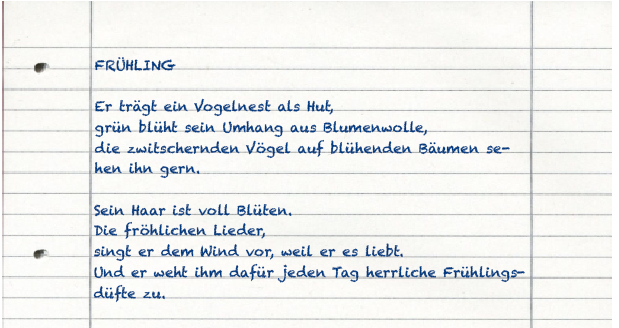 FRÜHLING
Er trägt ein Vogelnest als Hut,
grün blüht sein Umhang aus Blumenwolle,
die zwitschernden Vögel auf blühenden Bäumen se-
hen ihn gern.
Sein Haar ist voll Blüten.
Die fröhlichen Lieder,
singt er dem Wind vor, weil er es liebt.
Und er weht ihm dafür jeden Tag herrliche Frühlings-
düfte zu.